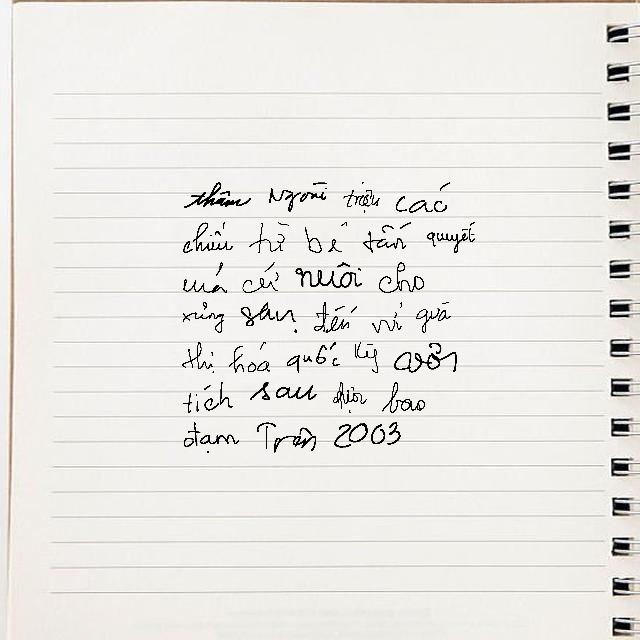 thăm Người triệu các
chiếu từ bé tấn quyết
má cứ nuôi cho
xứng sâu đến vử quả
thị hóa quốc Kỳ
tích sau diện bao
đạm Trần 2003